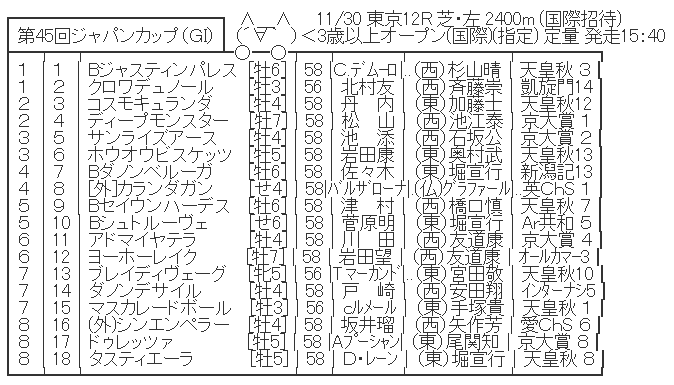 11/30 東京12R 芝・左 2400m (国際招待)
第45回ジャパンカップ (GI) <3歳以上オープン(国際)(指定) 定量 発走15:40
1 1 Bジャスティンパレス [牡6] 58 C.デムーロ (西) 杉山晴 天皇秋 3
1 2 クロワデュノール [牡3] 56 北村友 (西) 斉藤崇 凱旋門14
2 3 コスモキュランダ [牡4] 58 丹 内 (東) 加藤士 天皇秋12
2 4 ディープモンスター [牡7] 58 松 山 (西) 池江泰 京大賞 1
3 5 サンライズアース [牡4] 58 池 添 (西) 石坂公 京大賞 2
3 6 ホウオウビスケッツ [牡5] 58 岩田康 (東) 奥村武 天皇秋13
4 7 Bダノンベルーガ [牡6] 58 佐々木 (東) 堀宣行 新潟記13
4 8 [外]カランダガン [せ4] 58 バルザローナ (仏) グラファール 英ChS 1
5 9 Bセイウンハーデス [牡6] 58 津 村 (西) 橋口慎 天皇秋 7
5 10 Bシュトルーヴェ [せ6] 58 菅原明 (東) 堀宣行 Ar共和 5
6 11 アドマイヤテラ [牡4] 58 川 田 (西) 友道康 京大賞 4
6 12 ヨーホーレイク [牡7] 58 岩田望 (西) 友道康 オールカマー3
7 13 ブレイディヴェーグ [牝5] 56 Tマーカンド (東) 宮田敬 天皇秋10
7 14 ダノンデサイル [牡4] 58 戸 崎 (西) 安田翔 インターナシ5
7 15 マスカレードボール [牡3] 56 Cルメール (東) 手塚貴 天皇秋 1
8 16 (外)シンエンペラー [牡4] 58 坂井瑠 (西) 矢作芳 愛ChS 6
8 17 ドゥレッツァ [牡5] 58 Aプーシャン (東) 尾関知 京大賞 8
8 18 タスティエーラ [牡5] 58 D・レーン (東) 堀宣行 天皇秋 8